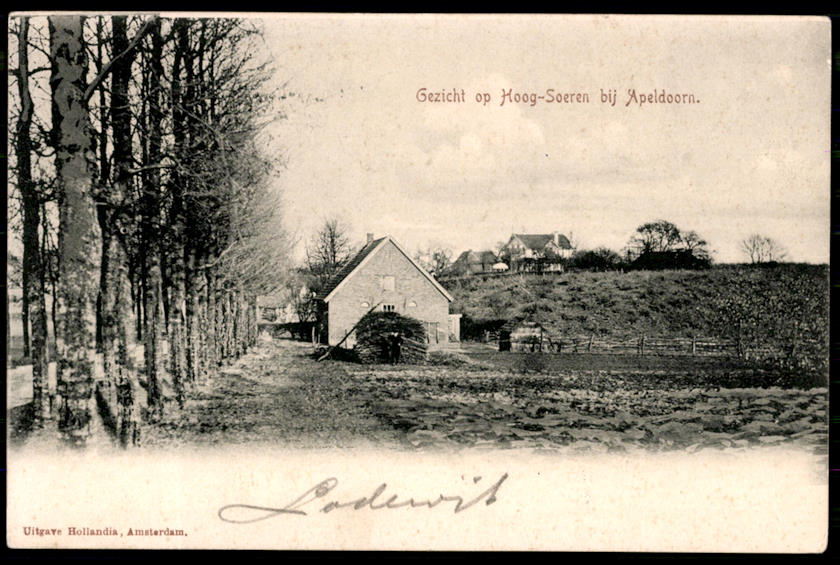 Gezicht op Hoog-Soeren bij Apeldoorn.
Lodewijk
Uitgave Hollandia, Amsterdam.